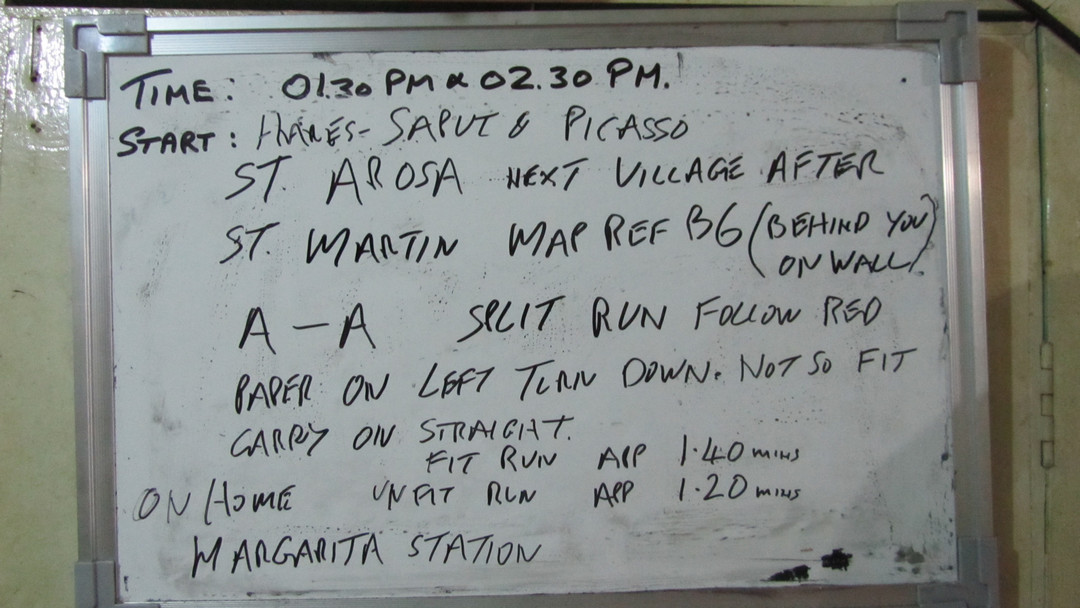 TIME: 01.30 PM & 02.30 PM.
START: HARES- SAPUT & PICASSO
ST. AROSA NEXT VILLAGE AFTER
ST. MARTIN MAP REF B6 (BEHIND YOU
ON WALL)
A - A SPLIT RUN FOLLOW RED
PAPER ON LEFT TURN DOWN. NOT SO FIT
CARRY ON STRAIGHT.
FIT RUN APP 1.40 MINS
ON HOME UNFIT RUN APP 1.20 MINS
MARGARITA STATION